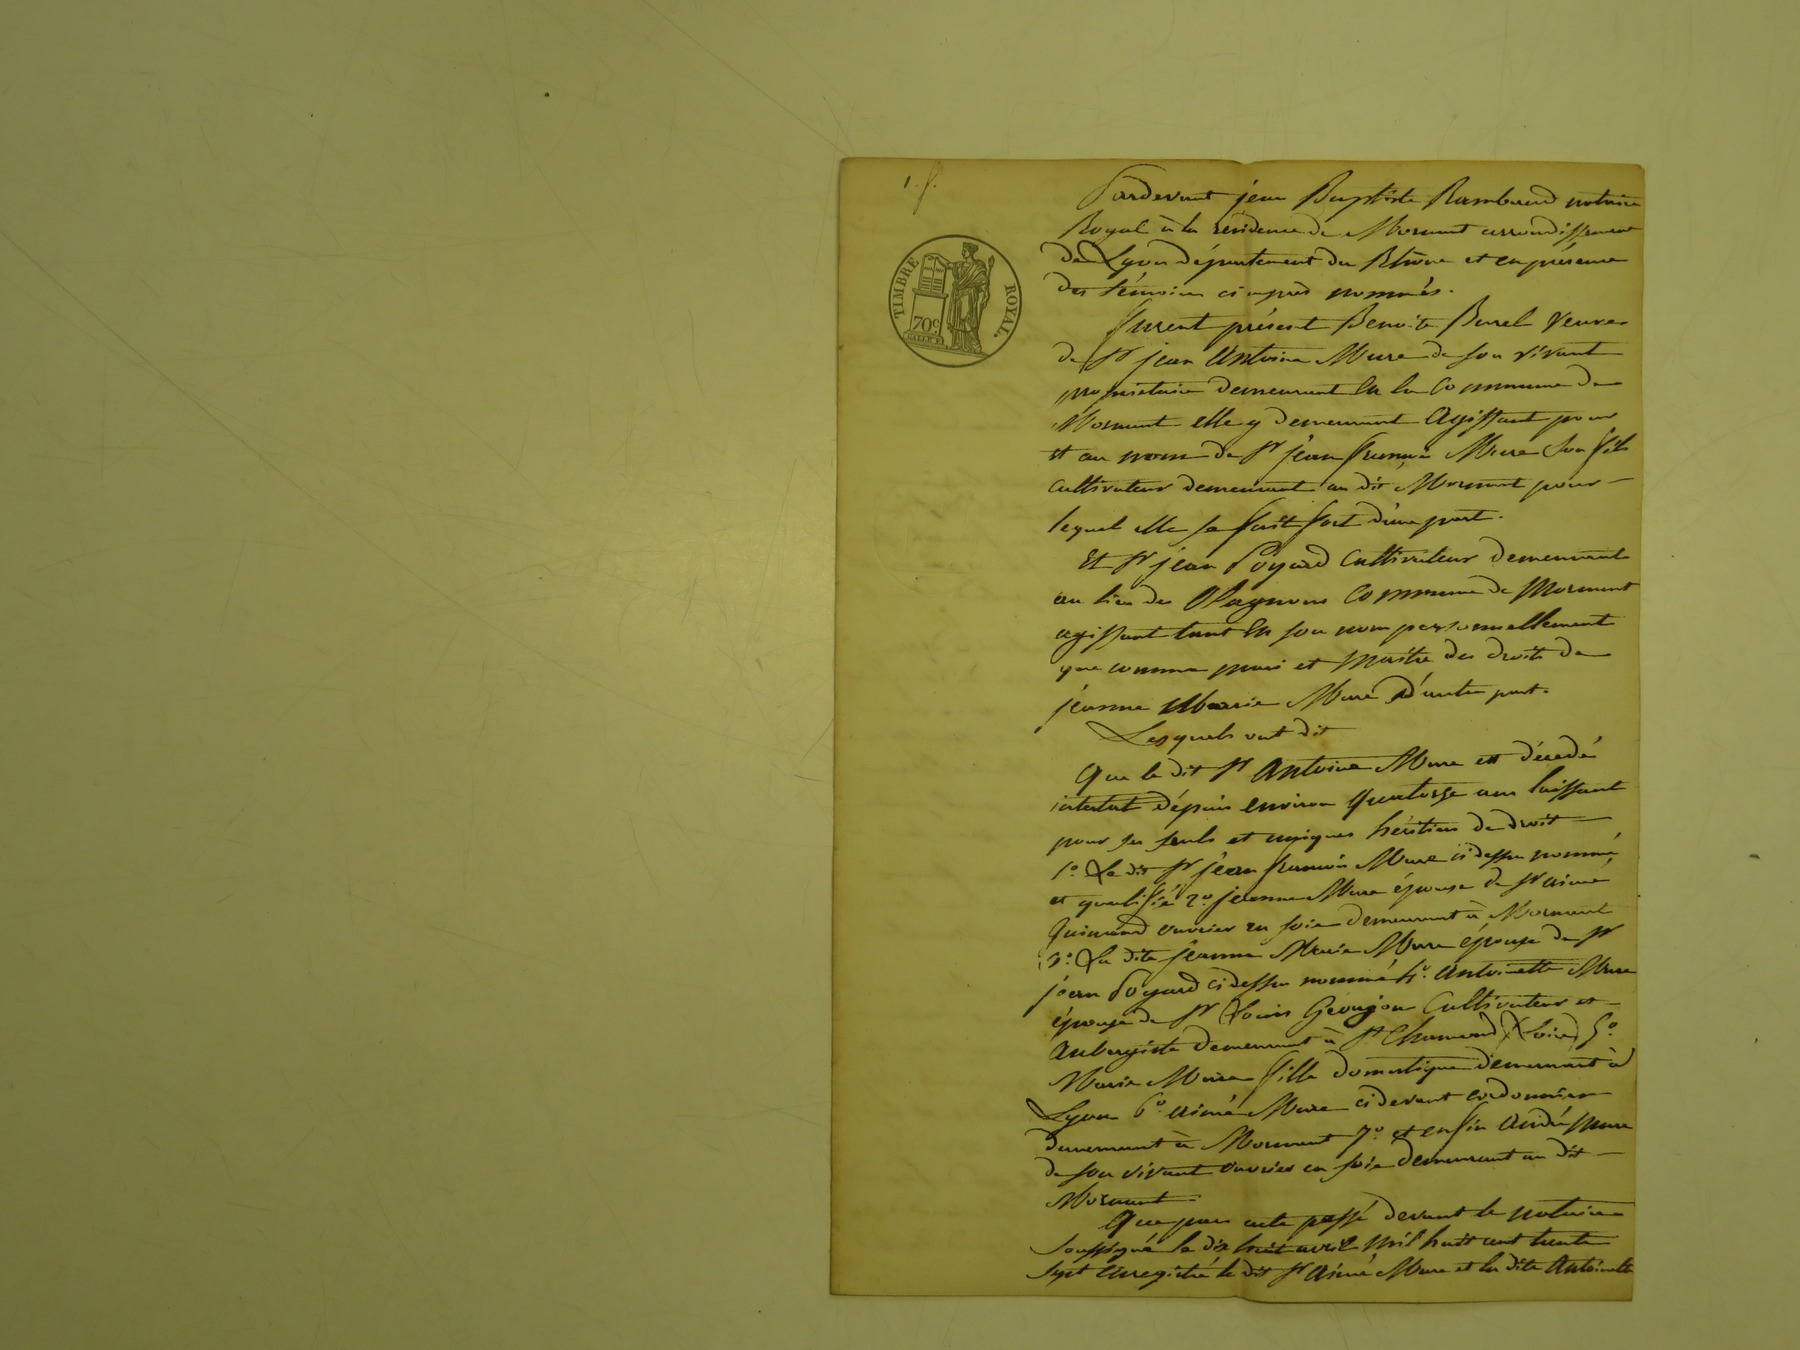 1. f.
TIMBRE ROYAL.
70c.
Pardevant jean Baptiste Rambaud notaire
Royal à la résidence de Mornant arrondissement
de Lyon département du Rhône et en présence
des témoins ci après nommés.
Furent présent Benoite Burel Veuve
de Sr jean Antoine Mure de son vivant
propriétaire demeurant En la Commune de
Mornant elle y demeurant Agissant pour
et au nom de Sr jean françois Mure Son fils
cultivateur demeurant au dit Mornant pour
lequel elle se fait fort d'une part.
Et Sr jean Poyard Cultivateur demeurant
au lieu des Plagnons Commune de Mornant
agissant tant En son nom personnellement
que comme mari et Maitre des droits de
jeanne Marie Mure D'autre part.
Lesquels ont dit
Que le dit Sr Antoine Mure est décedé
intestat dépuis environ Quatorze ans laissant
pour ses seuls et uniques héritiers de droit
1o. Le dit Sr jean francois Mure ci dessus nommé
et qualifié 2o. jeanne Mure épouse de Sr aimé
Guimand ouvrier en soie demeurant à Mornant
3o. La dite jeanne Marie Mure épouse de Sr
jean Poyard ci dessus nommé 4o. Antoinette Mure
épouse de Sr Louis Geoujon Cultivateur et
Aubergiste demeurant à St Chamond (Loire) 5o.
Marie Mure fille domestique demeurant à
Lyon 6o. aimé Mure ci devant cordonnier
demeurant à Mornant 7o. et enfin André Mure
de son vivant ouvrier en soie demeurant au dit
Mornant
Que par acte passé devant le notaire
soussigné le dix huit avril Mil huit cent trente
sept Enregistré le dit Sr Aimé Mure et la dite Antoinette